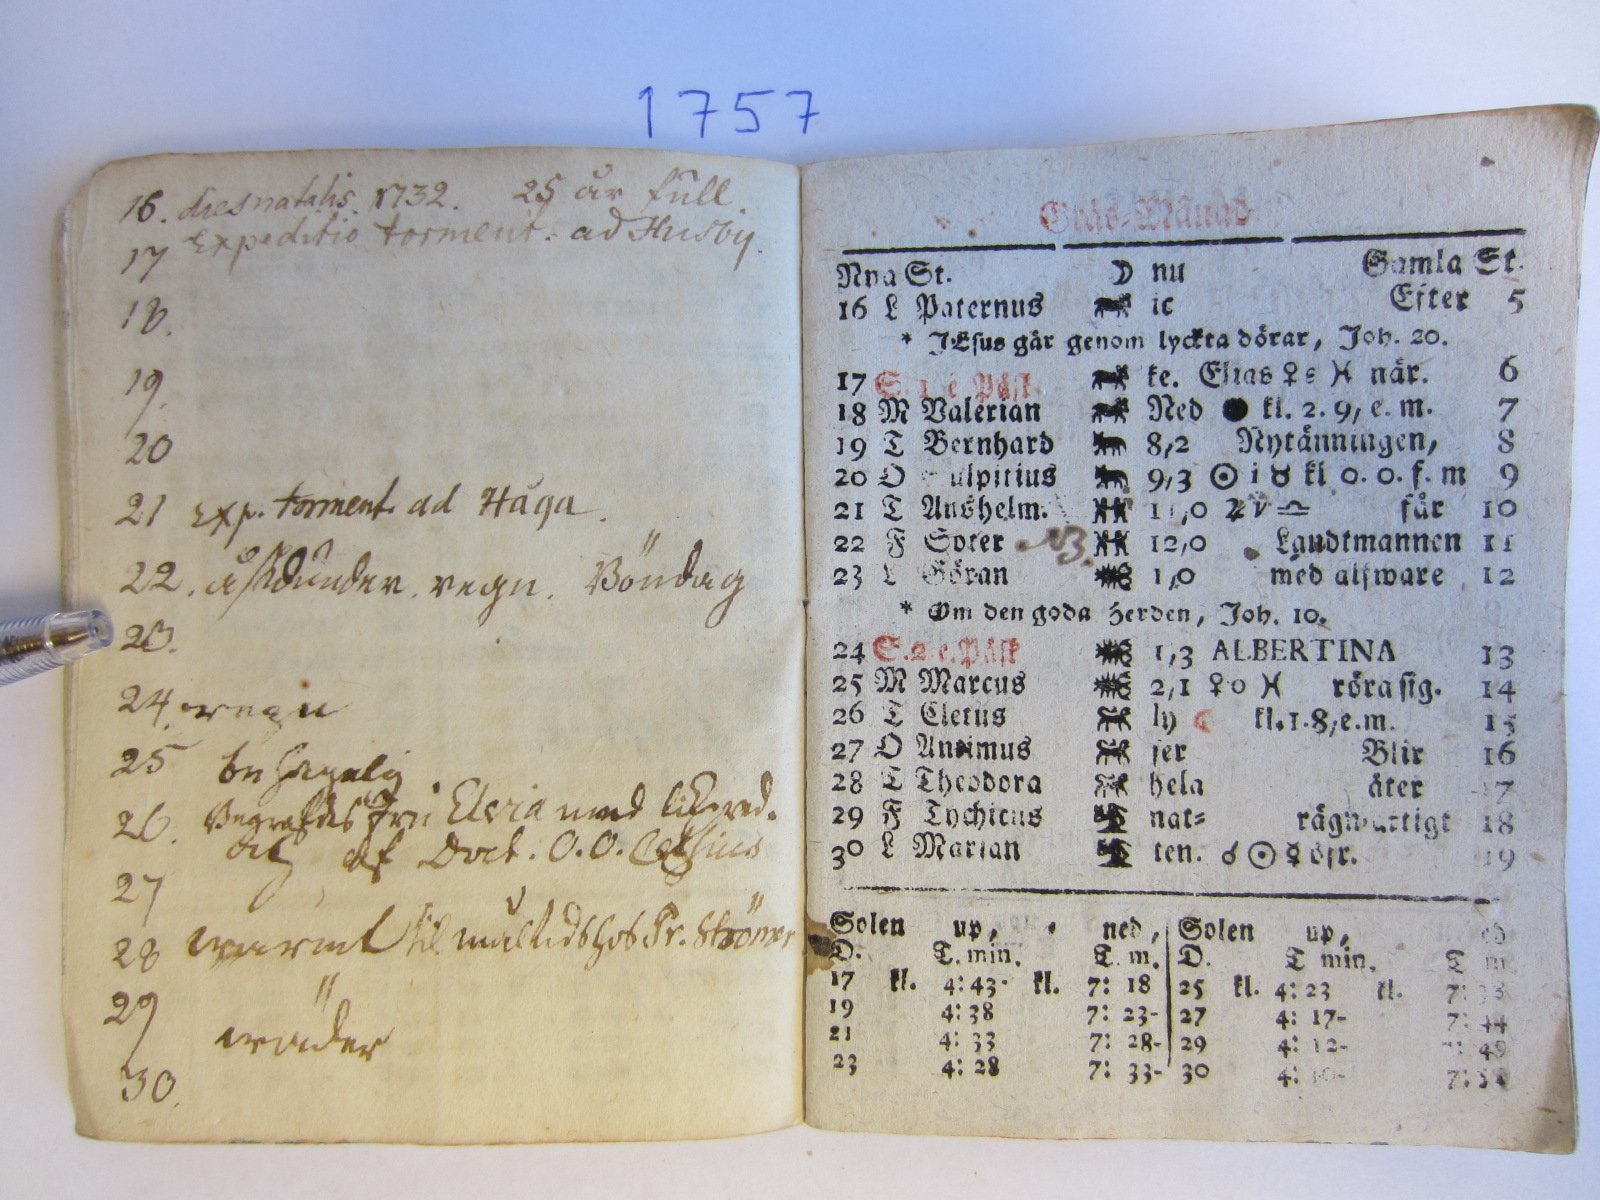 1757
16. dies natalis. 1732. 25 år full
17 Expeditio torment. ad Husby.
18.
19.
20
21 exp. torment. ad Håga.
22. åskdunder. regn. Böndag
23.
24. regn
25 behagelig
26. Begrafdes Fru Elvia med likpred.
af Doct. O. O. Celsius
27
28 varmt til måltids hos Pr. Strömer
29
wäder
30.
Gräs-Månad
Nya St. ☽ nu Gamla St.
16 L Paternus ic Efter 5
* JEsus går genom lyckta dörar, Joh. 20.
17 S. 1. e. Påsk ke. Elias ♀ ♓ när. 6
18 M Valerian Ned ● kl. 2. 9, e. m. 7
19 T Bernhard 8,2 Nytänningen, 8
20 O Sulpitius 9,3 ☉ i ♉ kl 0. 0. f. m 9
21 T Anshelm. 11,0 ♃ ♎ får 10
22 F Soter NB. 12,0 Landtmannen 11
23 L Göran 1,0 med alfware 12
* Om den goda Herden, Joh. 10.
24 S. 2 e. Påsk 1,3 ALBERTINA 13
25 M Marcus 2,1 ♀ ♓ röra sig. 14
26 T Cletus ly ☾ kl. 1. 8, e. m. 15
27 O Antimus ser Blir 16
28 T Theodora hela åter 17
29 F Tychicus nat= rägnachtigt 18
30 L Marian ten. ☌ ☉ ☿ öfr. 19
Solen up, ned, Solen up, ned
D. T. min. T. m. D. T. min. T. m
17 kl. 4: 43- kl. 7: 18 25 kl. 4: 23 kl. 7: 38
19 4: 38 7: 23- 27 4: 17- 7: 44
21 4: 33 7: 28- 29 4: 12- 7: 49
23 4: 28 7: 33- 30 4: 10- 7: